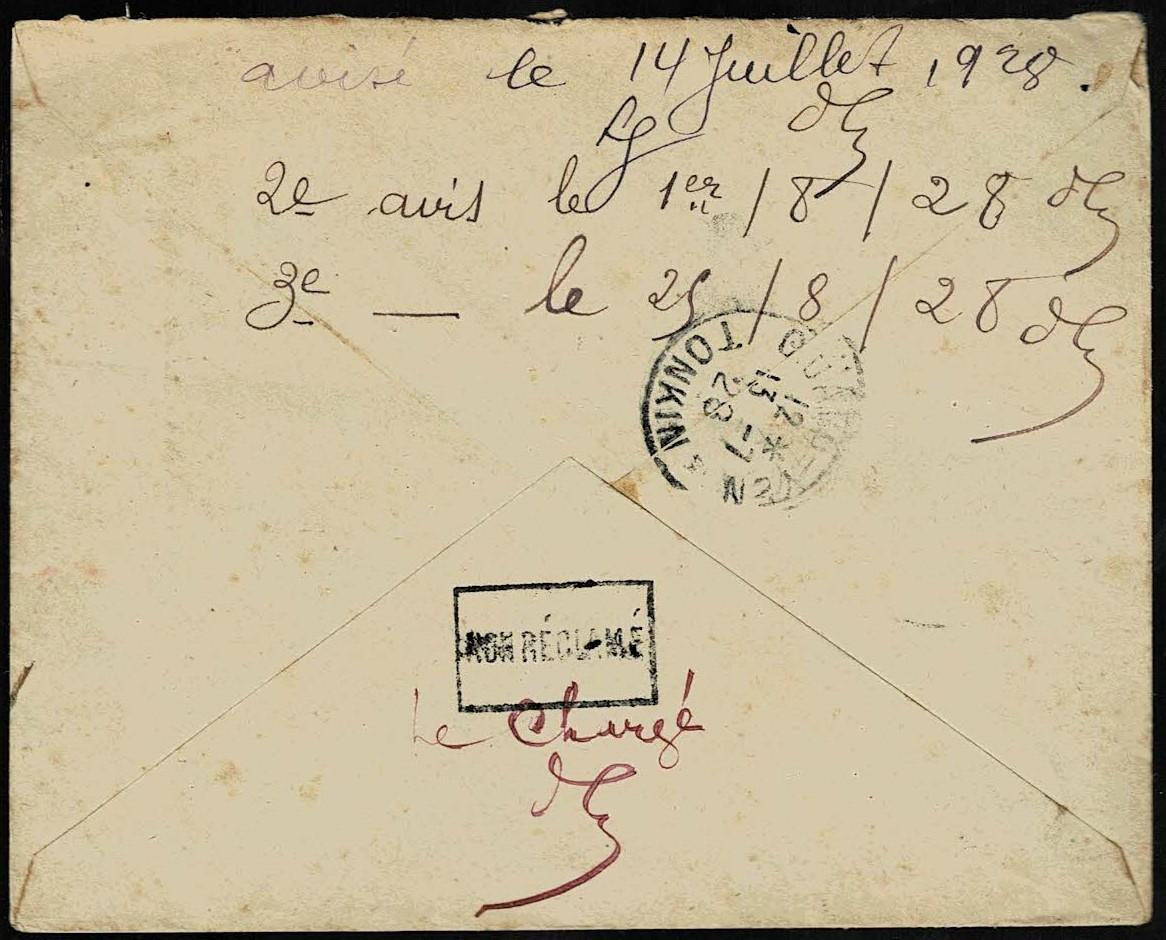 avisé le 14 Juillet 1928.
2e avis le 1er / 8 / 28
3e — le 25 / 8 / 28
QUANG-YEN
TONKIN
13
12 - 7
28
NON RÉCLAMÉ
Le Chargé